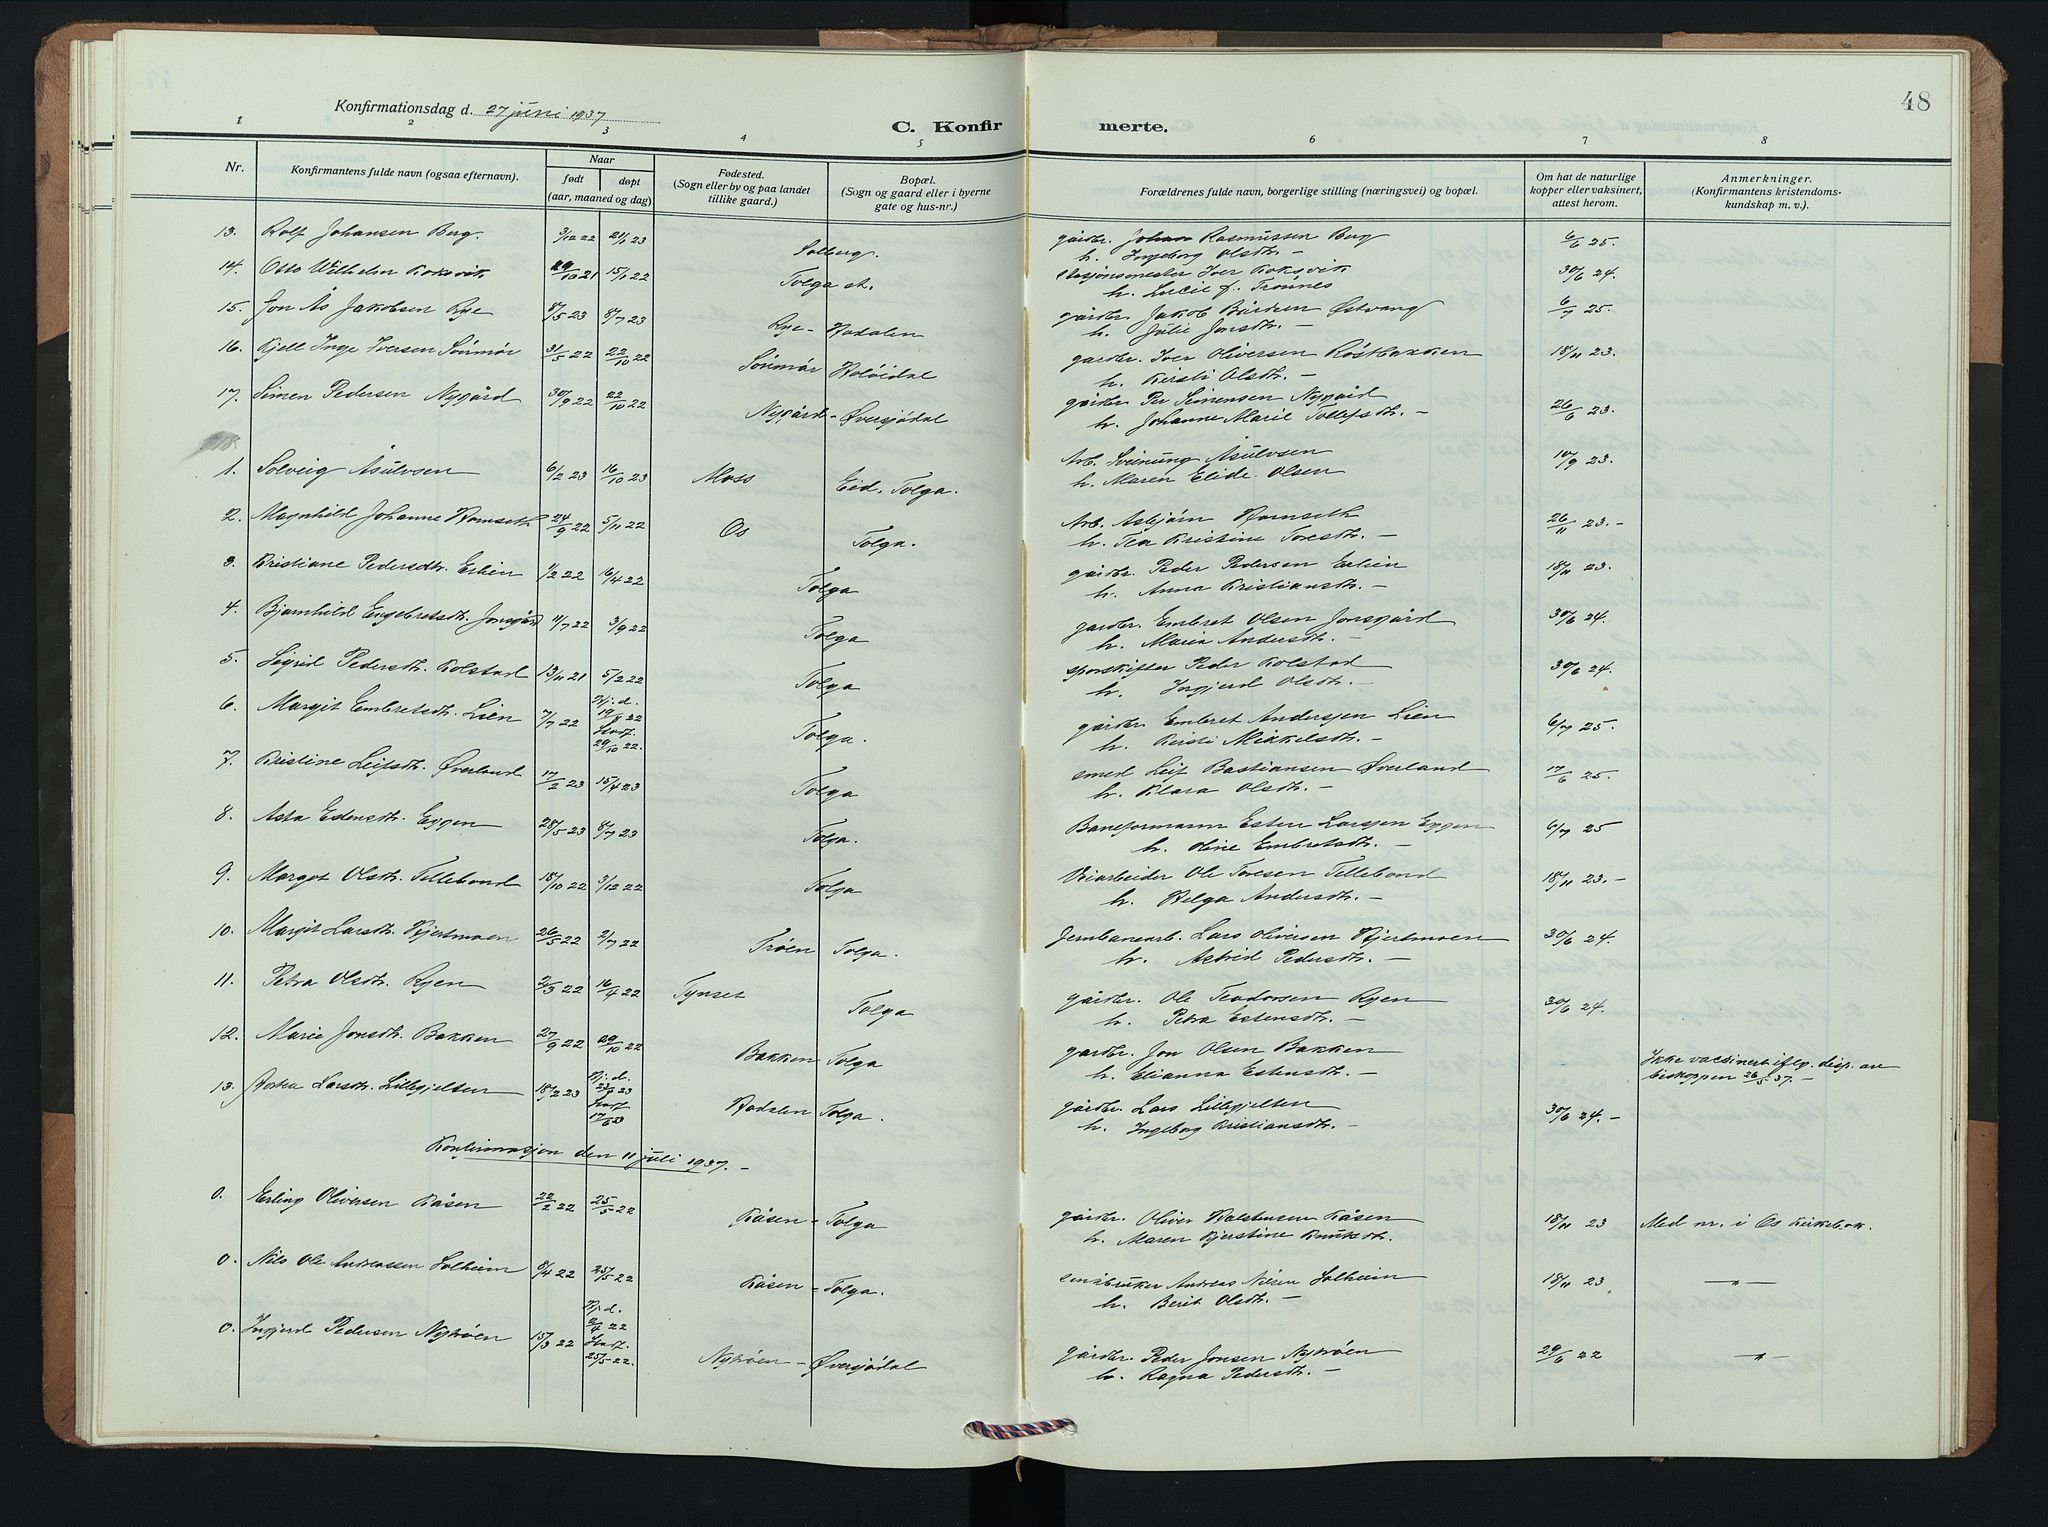 48
Konfirmationsdag d. 27 juni 1937
C. Konfirmerte.
1 2 3 4 5 6 7 8
Nr. Konfirmantens fulde navn (ogsaa efternavn). Naar født døpt (aar, maaned og dag) Fødested. (Sogn eller by og paa landet tillike gaard.) Bopæl. (Sogn og gaard eller i byerne gate og hus-nr.) Forældrenes fulde navn, borgerlige stilling (næringsvei) og bopæl. Om hat de naturlige kopper eller vaksinert, attest herom. Anmerkninger. (Konfirmantens kristendoms- kundskap m. v.).
13. Rolf Johansen Berg. 3/12 22 21/1 23 Solberg. gårdbr. Johan Rasmussen Berg 6/6 25.
h. Ingeborg Olsdtr. —
14. Otto Wilhelm Koksvik 29/10 21 15/1 22 Tolga st. stasjonsmester Iver Koksvik 30/6 24.
h. Lucie f. Trønnes
15. Jon Ås Jakobsen Rye 8/5 23 8/7 23 Rye - Hodalen gårdbr. Jakob Bårdsen Østvang 6/7 25.
h. Julie Jonsdtr. —
16. Kjell Inge Iversen Sønmør 31/5 22 22/10 22 Sønmør Holøidal gardbr. Iver Oliversen Røstbakken 18/11 23.
h. Kirsti Olsdtr. —
17. Simen Pedersen Nygård 30/9 22 22/10 22 Nygård - Øversjødal gårdbr. Per Simensen Nygård 26/6 23.
h. Johanne Marie Tollefsdtr. —
18.
1. Solveig Åsulvsen 6/2 23 16/10 23 Moss Eid, Tolga. Arb. Sveinung Åsulvsen 10/9 23.
h. Maren Elide Olsen
2. Magnhild Johanne Romseth 24/9 22 5/11 22 Os Tolga. Arb. Asbjørn Romseth 26/11 23. -
h. Tea Kristine Toresdtr. —
3. Kristiane Pedersdtr. Erlien 1/2 22 16/4 22 Tolga gårdbr. Peder Pedersen Erlien 18/11 23.
h. Anna Kristiansdtr. —
4. Bjarnhild Engebretsdtr. Jonsgård 11/7 22 3/9 22 Tolga gardbr. Embret Olsen Jonsgård 30/6 24.
h. Maria Andersdtr. —
5. Sigrid Pedersdtr. Kolstad 13/11 21 5/2 22 Tolga sporskifter Peder Kolstad 30/6 24.
h. Ingjerd Olsdtr. —
6. Margit Embretsdtr. Lien 7/7 22 Hj. d. 19/7 22 Stadf. 29/10 22. Tolga. gårdbr. Embret Andersen Lien 6/7 25.
h. Kirsti Mikkelsdtr. —
7. Kristine Leifsdtr. Øverland 17/2 23 15/4 23 Tolga smed Leif Bastiansen Øverland 17/6 25.
h. Klara Olsdtr. —
8. Asta Estensdtr. Eggen 28/5 23 8/7 23 Tolga. Baneformann Esten Larsen Eggen 6/7 25
h. Oline Embretsdtr. —
9. Margot Olsdtr. Tillebond 18/10 22 3/12 22 Tolga Veiarbeider Ole Toresen Tillebond 18/11 23. -
h. Helga Andersdtr. —
10. Margit Larsdtr. Hjertmoen 26/5 22 2/7 22 Trøen Tolga. Jernbanearb. Lars Oliversen Hjertmoen 30/6 24.
h. Astrid Pedersdtr. —
11. Petra Olsdtr. Ryen 2/3 22 16/4 22 Tynset Tolga gårdbr. Ole Teodorsen Ryen 30/6 24.
h. Petra Estensdtr. —
12. Marie Jonsdtr. Bakken 27/9 22 29/10 22 Bakken Tolga gårdbr. Jon Olsen Bakken Ikke vaccinert iflg. disp. av
h. Elianna Estensdtr. — biskoppen 26/5 37. —
13. Larsdtr. Lillegjelten 18/2 23 Hj. d. 23 Stadf. 17/6 23 Hodalen Tolga. gårdbr. Lars Lillegjelten 30/6 24. -
h. Ingeborg Kristiansdtr. —
Konfirmasjon den 11 juli 1937. -
0. Erling Oliversen Kåsen 22/2 22 25/5 22 Kåsen - Tolga gårdbr. Oliver Halstensen Kåsen 18/11 23 Med nr. i Os kirkebok.
h. Maren Kjerstine Knutsdtr.
0. Nils Ole Andreassen Solheim 8/4 22 25/5 22 Kåsen - Tolga. småbruker Andreas Nilsen Solheim 18/11 23 — " —
h. Berit Olsdtr. —
0. Ingjerd Pedersen Nytrøen 15/3 22 Hj. d. 2/4 22 Stadf. 25/5 22. Nytrøen - Øversjødal gårdbr. Peder Jonsen Nytrøen 29/6 22 — " —
h. Ragna Pedersdtr. —